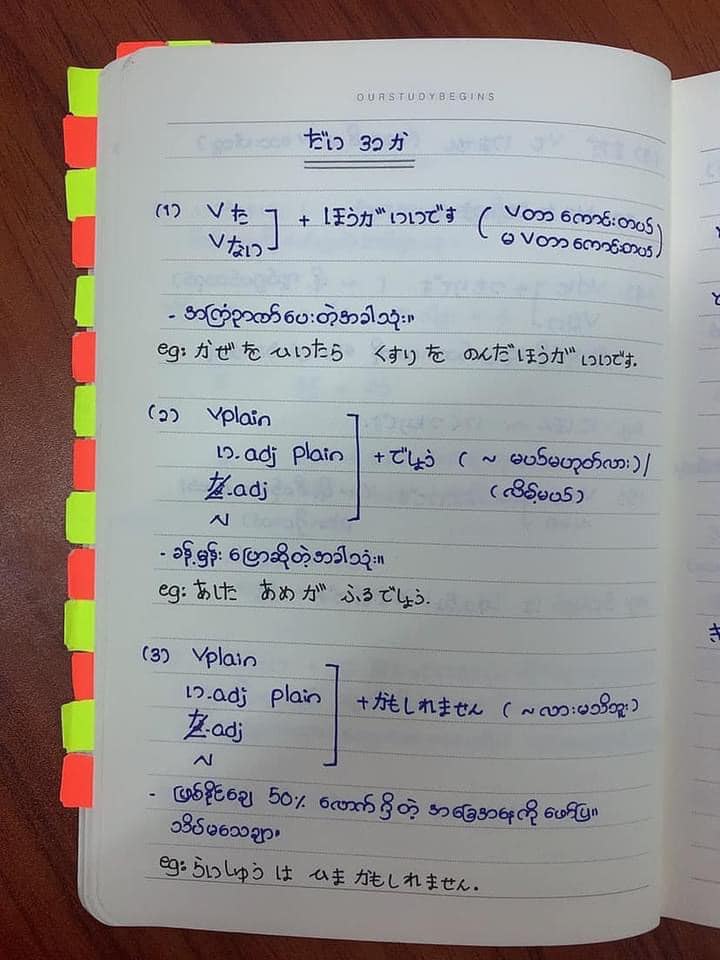 OURSTUDYBEGINS
だい ၃၁ か
(၁) Vた
Vない
+ ほうが いいです
(Vတာ ကောင်းတယ်
မ Vတာ ကောင်းတယ်)
- အကြံဉာဏ်ပေးတဲ့အခါသုံး။
eg: かぜを ひいたら くすりを のんだ ほうが いいです.
(၂) Vplain
い.adj plain
な.adj
N
+ でしょう (~ မယ်မဟုတ်လား)/
(လိမ့်မယ်)
- ခန့်မှန်း ပြောဆိုတဲ့အခါသုံး။
eg: あした あめが ふるでしょう.
(3) Vplain
い.adj plain
な.adj
N
+ かもしれません (~လားမသိဘူး)
- ဖြစ်နိုင်ချေ 50% လောက်ရှိတဲ့ အခြေအနေကို ဖော်ပြ။
သိပ်မသေချာ
eg: らいしゅうは ひま かもしれません.